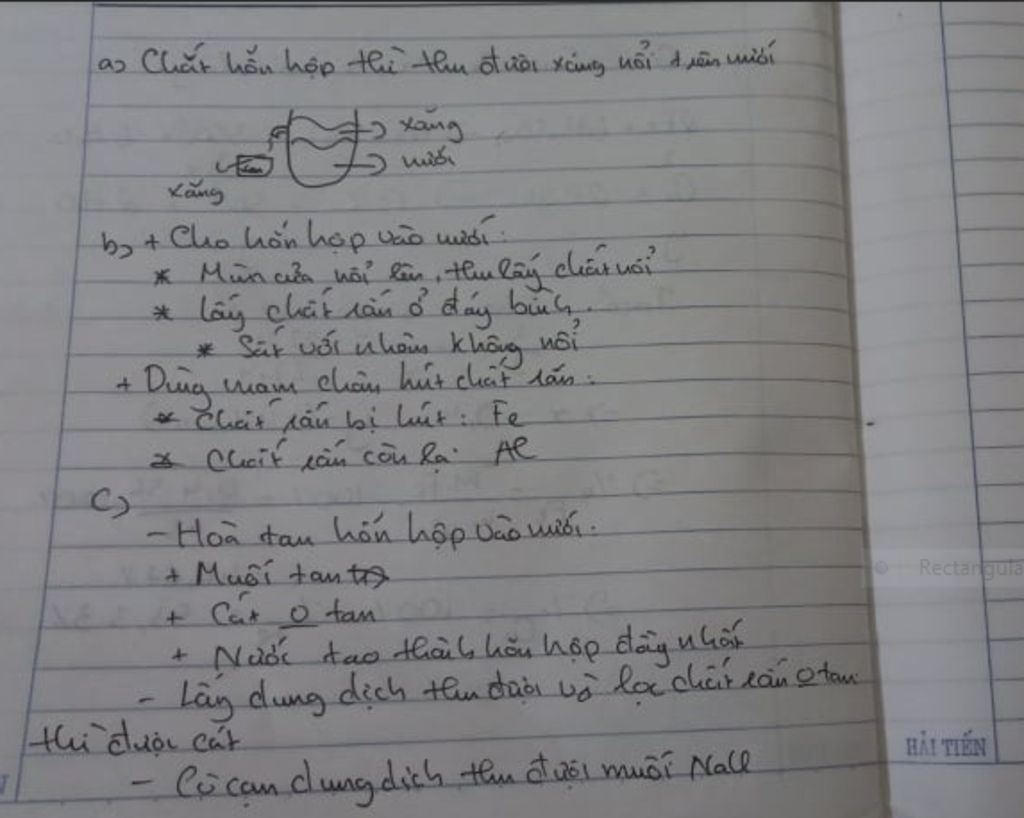 a) Chất hỗn hợp thì thu được xăng nổi trên nước
xăng
nước
xăng
b) + Cho hỗn hợp vào nước:
* Mùn cưa nổi lên, thu lấy chất nổi
* Lấy chất rắn ở đáy bình.
* Sắt với nhôm không nổi
+ Dùng nam châm hút chất rắn:
* Chất rắn bị hút: Fe
* Chất rắn còn lại: Al
c)
- Hoà tan hỗn hợp vào nước:
+ Muối tan
+ Cát O tan
+ Nước tạo thành hỗn hợp đồng nhất
- Lấy dung dịch thu được và lọc chất rắn O tan
thì được cát
- Cô cạn dung dịch thu được muối NaCl
HẢI TIẾN
Rectangula